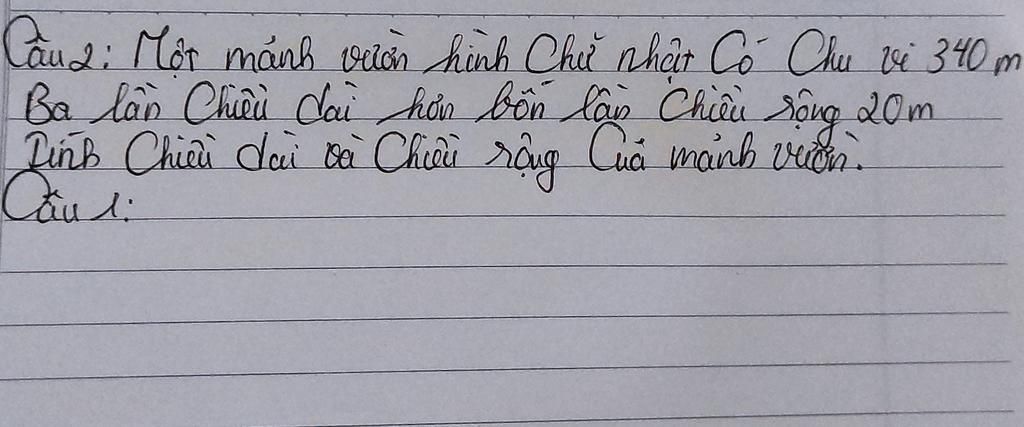 Câu 2: Một mảnh vườn hình Chữ nhật Có Chu vi 340 m
Ba lần Chiều dài hơn bốn lần Chiều rộng 20m
Tính Chiều dài và Chiều rộng Của mảnh vườn.
Câu 1: